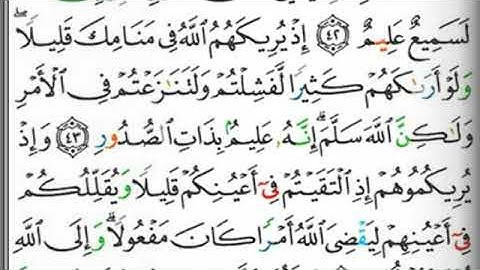 لَسَمِيعٌ عَلِيمٌ ٤٢ إِذْ يُرِيكَهُمُ ٱللَّهُ فِى مَنَامِكَ قَلِيلًا ۖ
وَلَوْ أَرَىٰكَهُمْ كَثِيرًا لَّفَشِلْتُمْ وَلَتَنَـٰزَعْتُمْ فِى ٱلْأَمْرِ
وَلَـٰكِنَّ ٱللَّهَ سَلَّمَ ۗ إِنَّهُۥ عَلِيمٌۢ بِذَاتِ ٱلصُّدُورِ ٤٣ وَإِذْ
يُرِيكُمُوهُمْ إِذِ ٱلْتَقَيْتُمْ فِىٓ أَعْيُنِكُمْ قَلِيلًا وَيُقَلِّلُكُمْ
فِىٓ أَعْيُنِهِمْ لِيَقْضِىَ ٱللَّهُ أَمْرًا كَانَ مَفْعُولًا ۗ وَإِلَى ٱللَّهِ